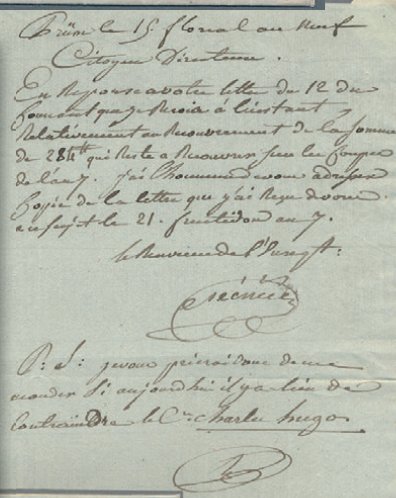 Prüm le 15 floreal an Neuf
Citoyen Directeur.
En Reponse a votre lettre du 12 du
Courant que je Recois à l'instant
Relativement au Recouvrement de la somme
de 284tt qui Reste a Recouvrer sur les Coupes
de l'an 7. j'ai l'honneur de vous adresser
Copie de la lettre que j'ai Reçu de vous
au sujet le 21. fructidor an 7.
le Receveur de l'Enregt:
P: S: je vous prierai donc de me
mander Si aujourdhui il y a lieu de
Contraindre le Cn. Charles hugo